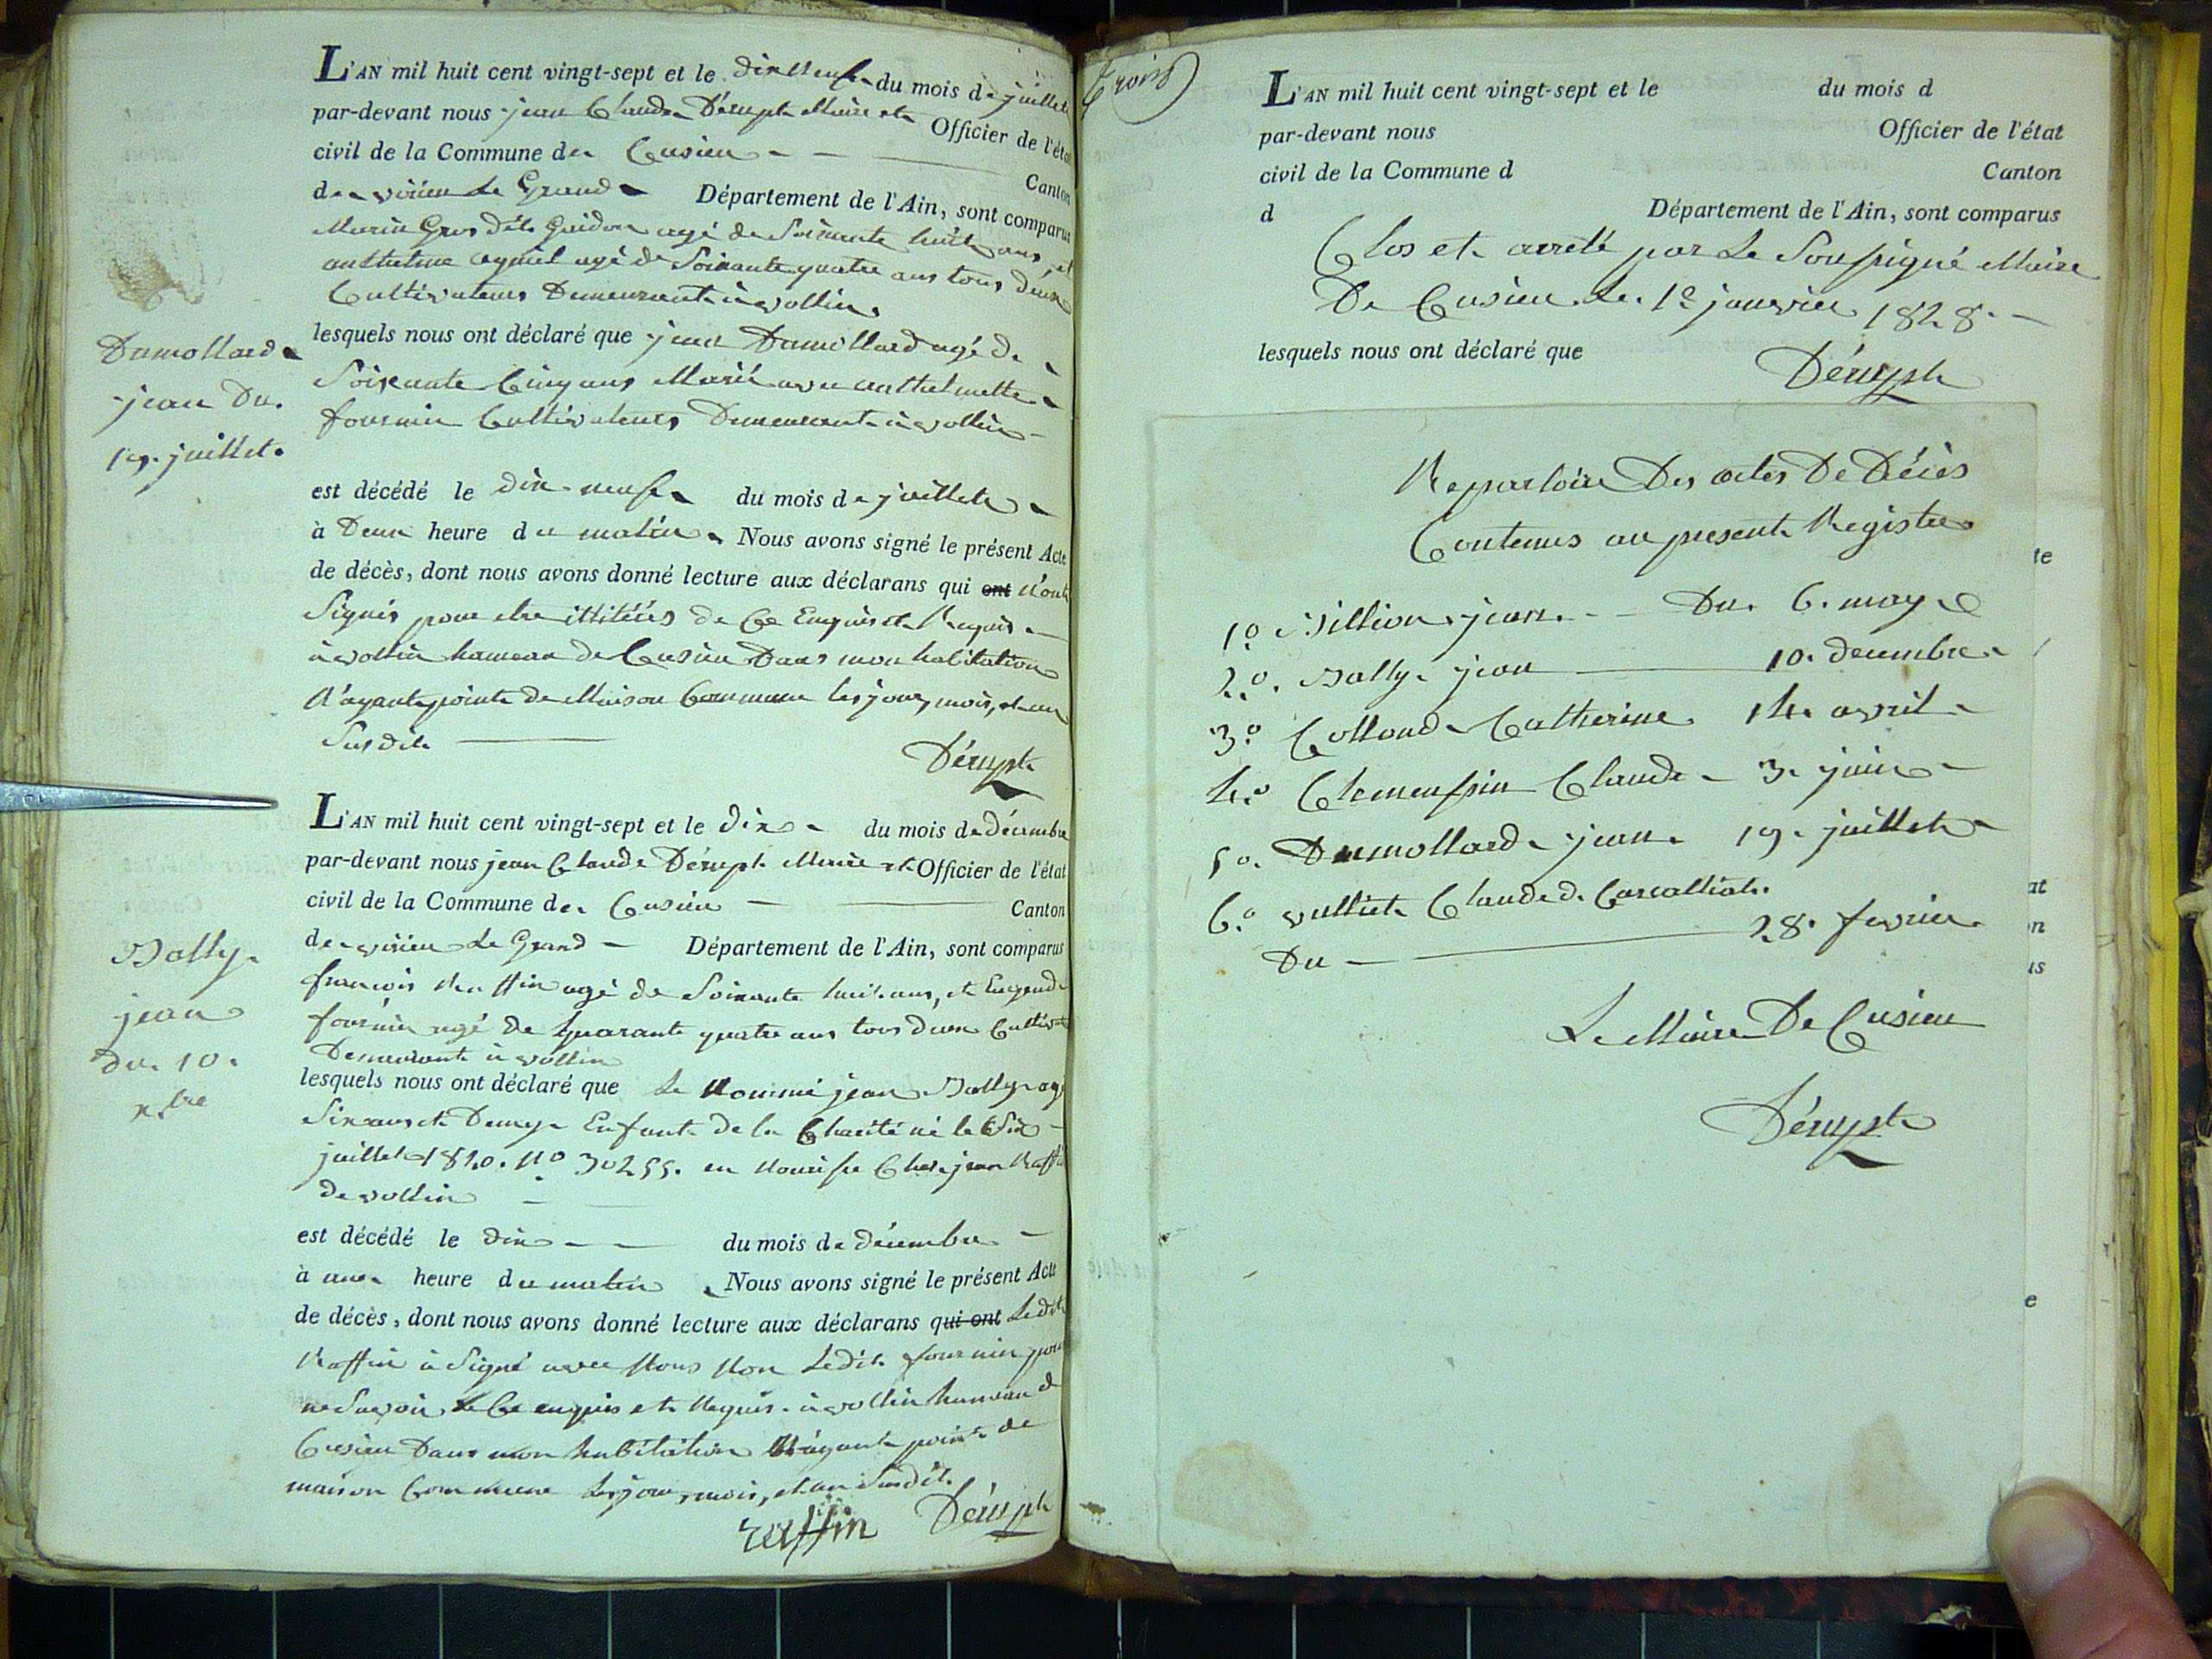 L'AN mil huit cent vingt-sept et le dix neuf du mois de juillet
par-devant nous jean Claude Dérupt Maire et Officier de l'état
civil de la Commune de Cusieu Canton
de virieu Le Grand Département de l'Ain, sont comparus
Marin Gros dit Guidon agé de Soixante huit ans, et
anthelme aymel agé de Soixante quatre ans tous deux
Cultivateurs Demeurant à vollin
Dumollard
jean Du.
19. juillet.
lesquels nous ont déclaré que jean Dumollard agé de
Soixante Cinq ans Marié avec anthelmette
fournier Cultivateurs Demeurant à vollin
est décédé le dix-neuf du mois de juillet
à Deux heure du matin Nous avons signé le présent Acte
de décès, dont nous avons donné lecture aux déclarans qui ont n'ont
Signés pour etre illitérés de Ce Enquis et Requis
à vollin hameau de Cusieu Dans mon habitation
N'ayant point de Maison Commune les jour, mois, et an
Susdit
Dérupt
L'AN mil huit cent vingt-sept et le dix du mois de décembre
par-devant nous jean Claude Dérupt Maire et Officier de l'état
civil de la Commune de Cusieu Canton
de virieu Le Grand Département de l'Ain, sont comparus
françois Raffin agé de Soixante huit ans, et
fournier agé de Quarante quatre ans tous deux Cultivat
Demeurant à vollin
Bally
jean
du. 10.
xbre
lesquels nous ont déclaré que Le Nommé jean Bally agé
Six ans et Demy Enfant de la Charité né le Six
juillet 1820. No 30255. en Nourisse Chez jean Raffin
de vollin
est décédé le dix du mois de décembre
à une heure du matin Nous avons signé le présent Acte
de décès, dont nous avons donné lecture aux déclarans qui ont Ledit
Raffin à Signé avec Nous Non Ledit fournier pour
ne Savoir de Ce enquis et Requis. à vollin hameau de
Cusieu Dans mon habitation N'ayant point de
maison Commune les jour, mois, et an Susdit.
raffin Dérupt
L'AN mil huit cent vingt-sept et le du mois d
par-devant nous Officier de l'état
civil de la Commune d Canton
d Département de l'Ain, sont comparus
Clos et arreté par Le Soussigné Maire
De Cusieu Le 1er janvier 1828.
lesquels nous ont déclaré que
Dérupt
Repertoire Des actes De Décès
Contenus au present Registre
1o. Billion jean. Du. 6. may
2o. Bally jean 10. decembre
3o. Collond Catherine 14. avril
4o. Clemensin Claude 3. juin
5o. Dumollard jean 19. juillet
6o. vulliet Claude
Du 28. fevrier
Le Maire De Cusieu
Dérupt